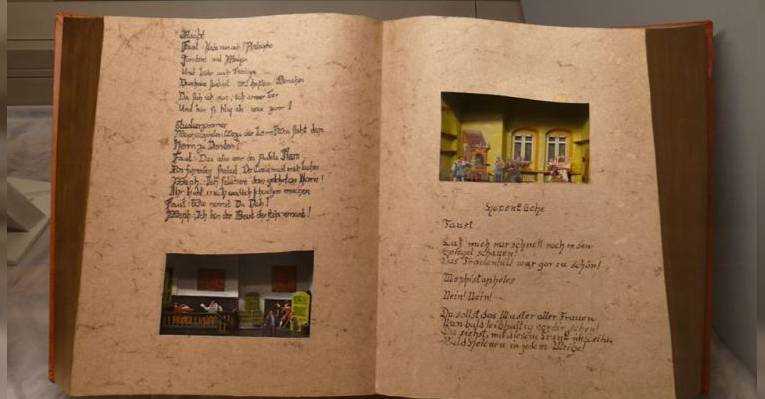 Nacht
Faust: Habe nun ach! Philosophie
Juristerei und Medizin
Und leider auch Theologie
Durchaus studiert mit heißem Bemühen
Da steh ich nun, ich armer Tor
Und bin so klug als wie zuvor!
Studierzimmer
Mephistopheles: Wozu der Lärm? Was steht dem
Herrn zu Diensten?
Faust: Das also war des Pudels Kern
Ein fahrender Scolast? Der Casus macht mich lachen
Meph.: Ich salutiere dem gelehrten Herrn!
Ihr habt mich weidlich schwitzen machen
Faust: Wie nennst Du Dich?
Meph.: Ich bin der Geist der stets verneint!
Hexenküche
Faust
Laß mich nur schnell noch in den
Spiegel schauen!
Das Frauenbild war gar zu schön!
Mephistopheles
Nein! Nein!
Du sollst das Muster aller Frauen
Nun bald leibhaftig vor dir sehen!
Du siehst, mit diesem Trank im Leibe,
Bald Helenen in jedem Weibe!